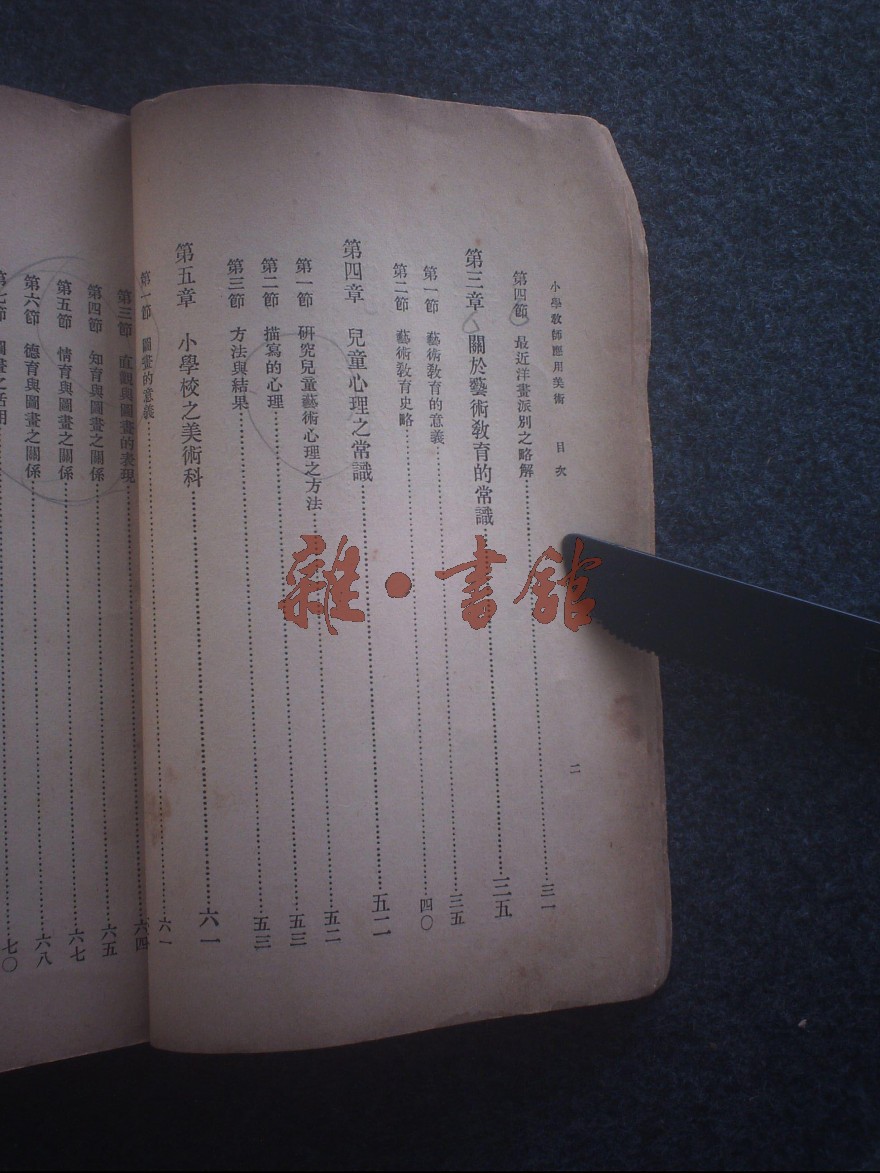 小學教師應用美術 目次
二
第四節 最近洋畫派別之略解 三一
第三章 關於藝術教育的常識 三五
第一節 藝術教育的意義 三五
第二節 藝術教育史略 四〇
第四章 兒童心理之常識 五二
第一節 研究兒童藝術心理之方法 五二
第二節 描寫的心理 五三
第三節 方法與結果 五三
第五章 小學校之美術科 六一
第一節 圖畫的意義 六一
第三節 直觀與圖畫的表現 六四
第四節 知育與圖畫之關係 六五
第五節 情育與圖畫之關係 六七
第六節 德育與圖畫之關係 六八
第七節 圖畫之活用 七〇
雜·書館